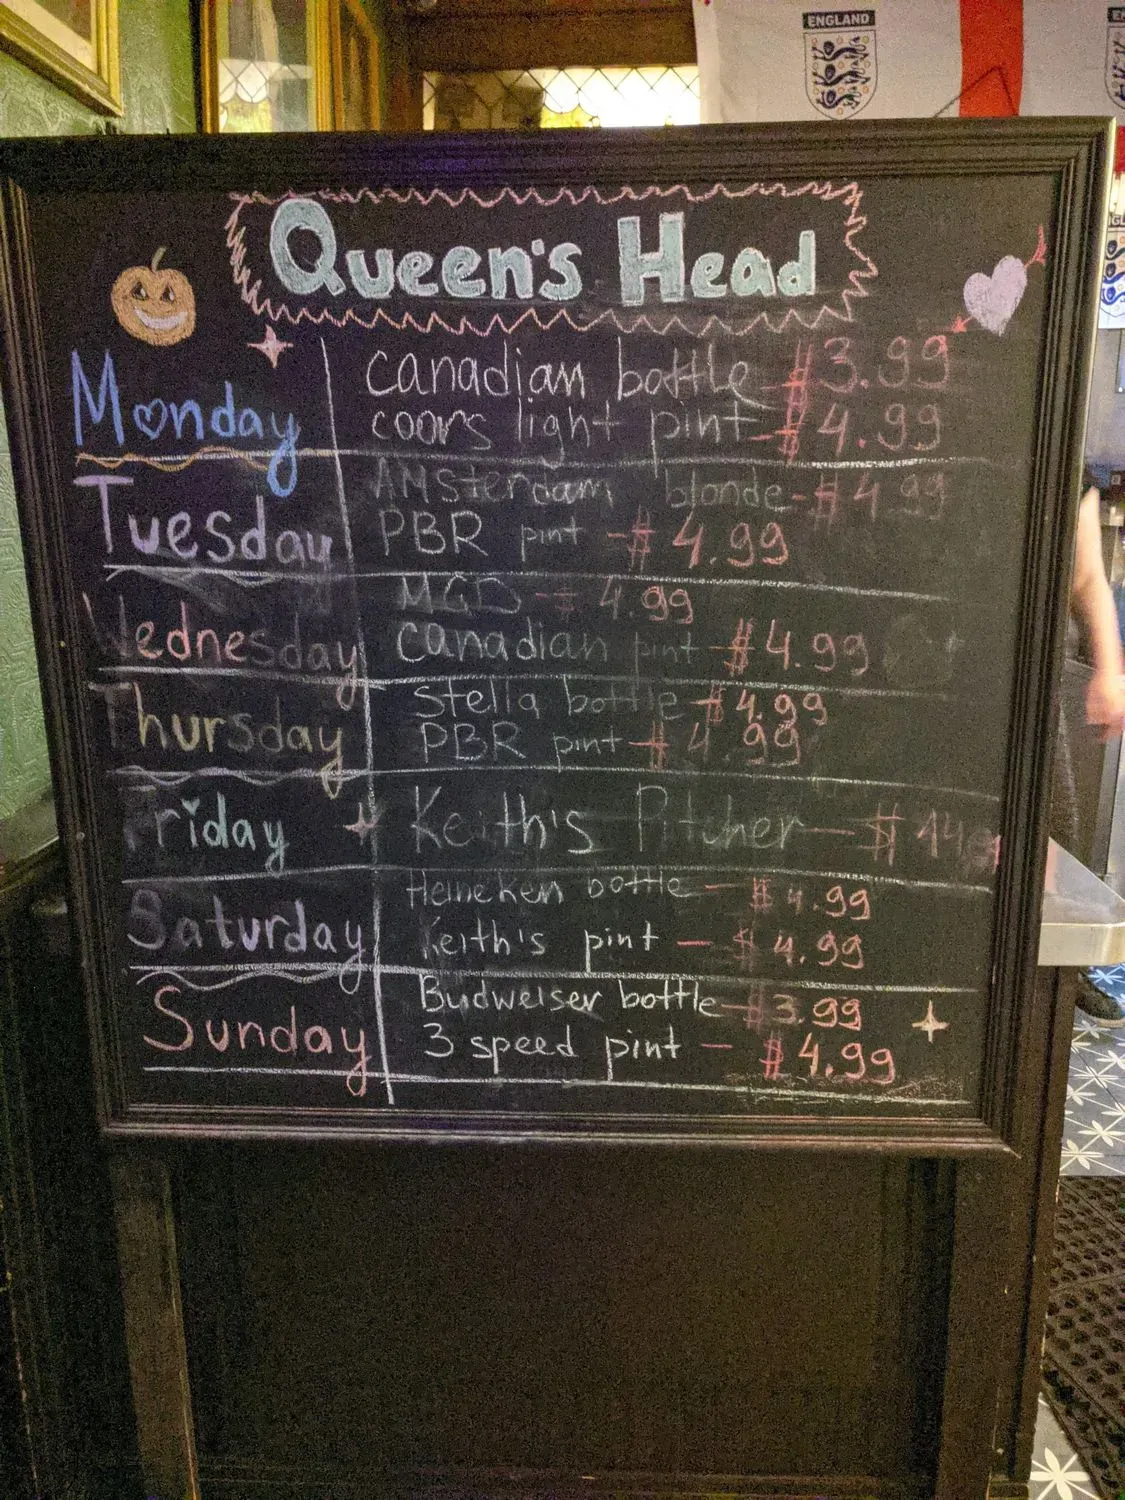 ENGLAND
Queen's Head
Monday
canadian bottle - $3.99
coors light pint - $4.99
Tuesday
AMsterdam blonde - $4.99
PBR pint - $4.99
Wednesday
MGD - 4.99
canadian pint - $4.99
Thursday
Stella bottle - $4.99
PBR pint - $4.99
Friday
Keith's Pitcher —
Saturday
Heineken bottle — $4.99
Keith's pint — $4.99
Sunday
Budweiser bottle - $3.99
3 speed pint — $4.99